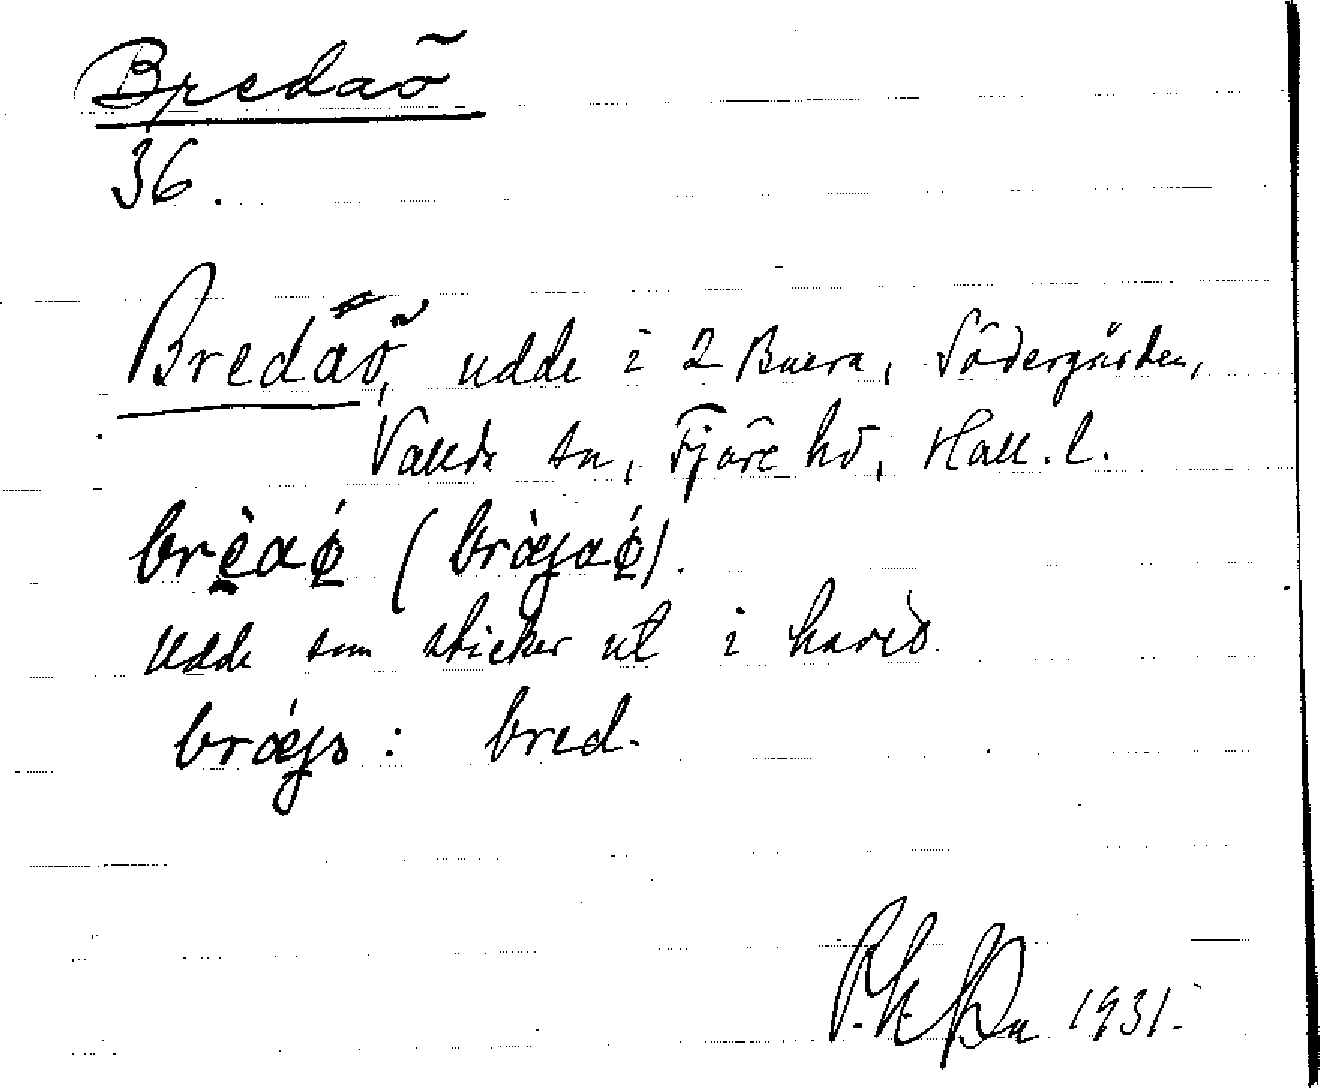 Bredaö
36.
Bredaö, udde i 2 Buera, Södergården,
Vallda sn, Fjäre hd, Hall. l.
brèaǿ (bràgaǿ).
Udde som sticker ut i havet.
: bred.
1931.